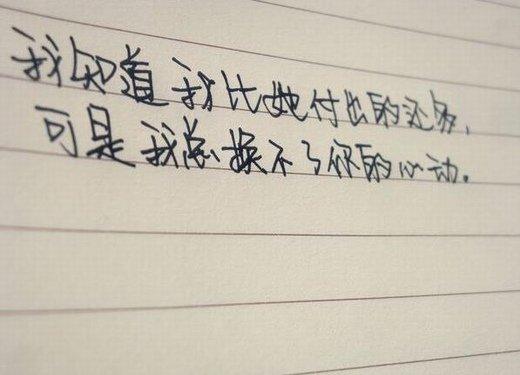 我知道我比她付出的还多，
可是我总换不了你的心动。